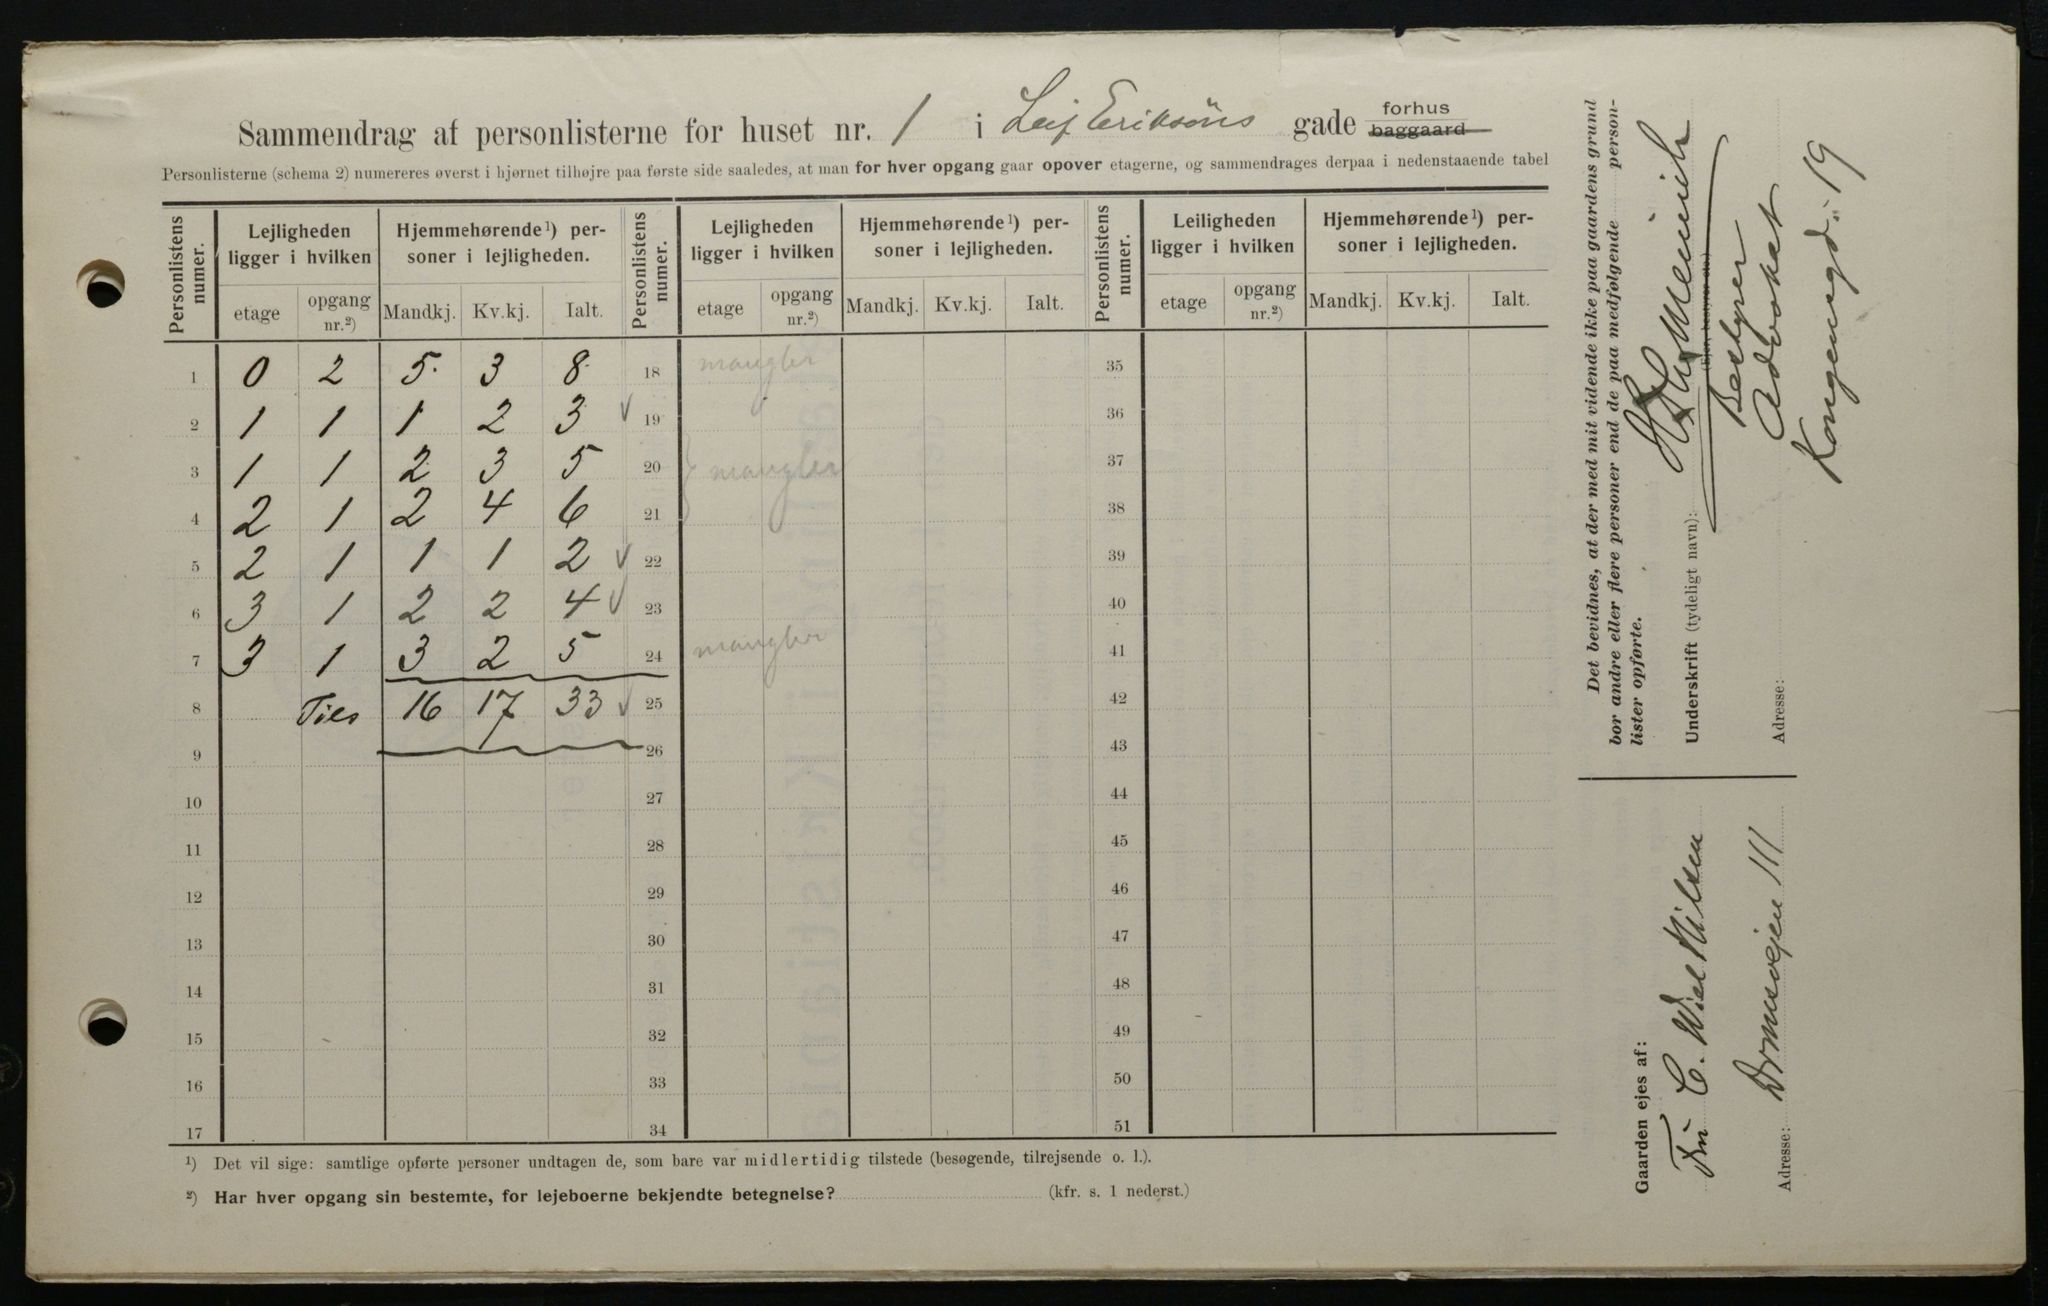 Sammendrag af personlisterne for huset nr. 1 i Leif Eriksøns gade forhus baggaard
Personlisterne (schema 2) numereres øverst i hjørnet tilhøjre paa første side saaledes, at man for hver opgang gaar opover etagerne, og sammendrages derpaa i nedenstaaende tabel
Personlistens numer. Lejligheden ligger i hvilken Hjemmehørende¹) personer i lejligheden. Personlistens numer. Lejligheden ligger i hvilken Hjemmehørende¹) personer i lejligheden. Personlistens numer. Leiligheden ligger i hvilken Hjemmehørende¹) personer i lejligheden.
etage opgang nr.²) Mandkj. Kv.kj. Ialt. etage opgang nr.²) Mandkj. Kv.kj. Ialt. etage opgang nr.²) Mandkj. Kv.kj. Ialt.
1 0 2 5 3 8 18 mangler 35
2 1 1 1 2 3 √ 19 36
3 1 1 2 3 5 20 mangler 37
4 2 1 2 4 6 21 38
5 2 1 1 1 2 √ 22 39
6 3 1 2 2 4 √ 23 40
7 3 1 3 2 5 24 mangler 41
8 Tils 16 17 33 √ 25 42
9 26 43
10 27 44
11 28 45
12 29 46
13 30 47
14 31 48
15 32 49
16 33 50
17 34 51
¹) Det vil sige: samtlige opførte personer undtagen de, som bare var midlertidig tilstede (besøgende, tilrejsende o. l.).
²) Har hver opgang sin bestemte, for lejeboerne bekjendte betegnelse? (kfr. s. 1 nederst.)
Det bevidnes, at der med mit vidende ikke paa gaardens grund
bor andre eller flere personer end de paa medfølgende personlister opførte.
Underskrift (tydeligt navn):
(Ejer, bestyrer etc.)
Bestyrer
Advokat
Adresse: Kongensgd. 19
Gaarden ejes af:
Fru C. Wiel Nilsen
Adresse: Drammensvejen 111